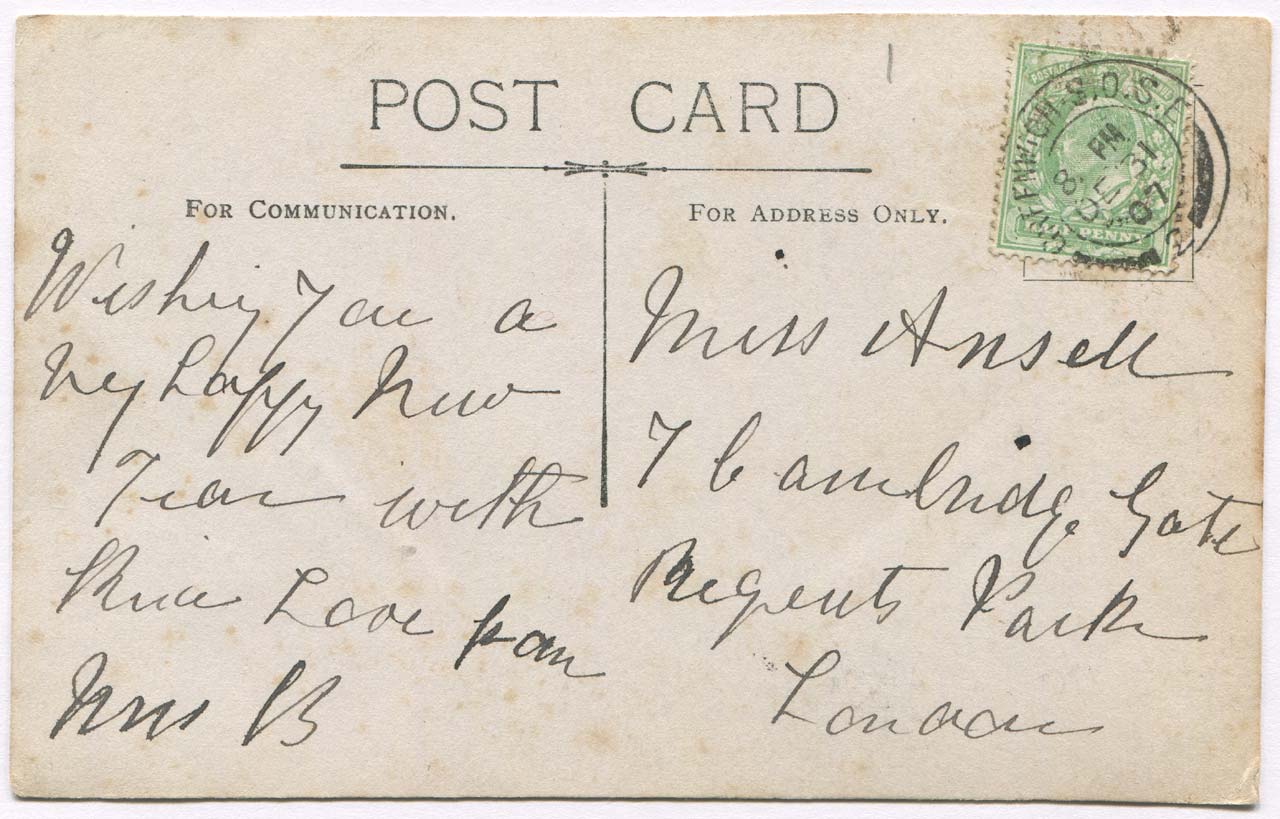 POST CARD
FOR COMMUNICATION.
Wishing You a
very happy New
Year with
Kind Love from
Mrs B
FOR ADDRESS ONLY.
Miss Ansell
7 Cambridge Gate
Regents Park
London
POSTAGE
HALF PENNY
GREENWICH·S.O.S.E
8 PM
DE 31
07